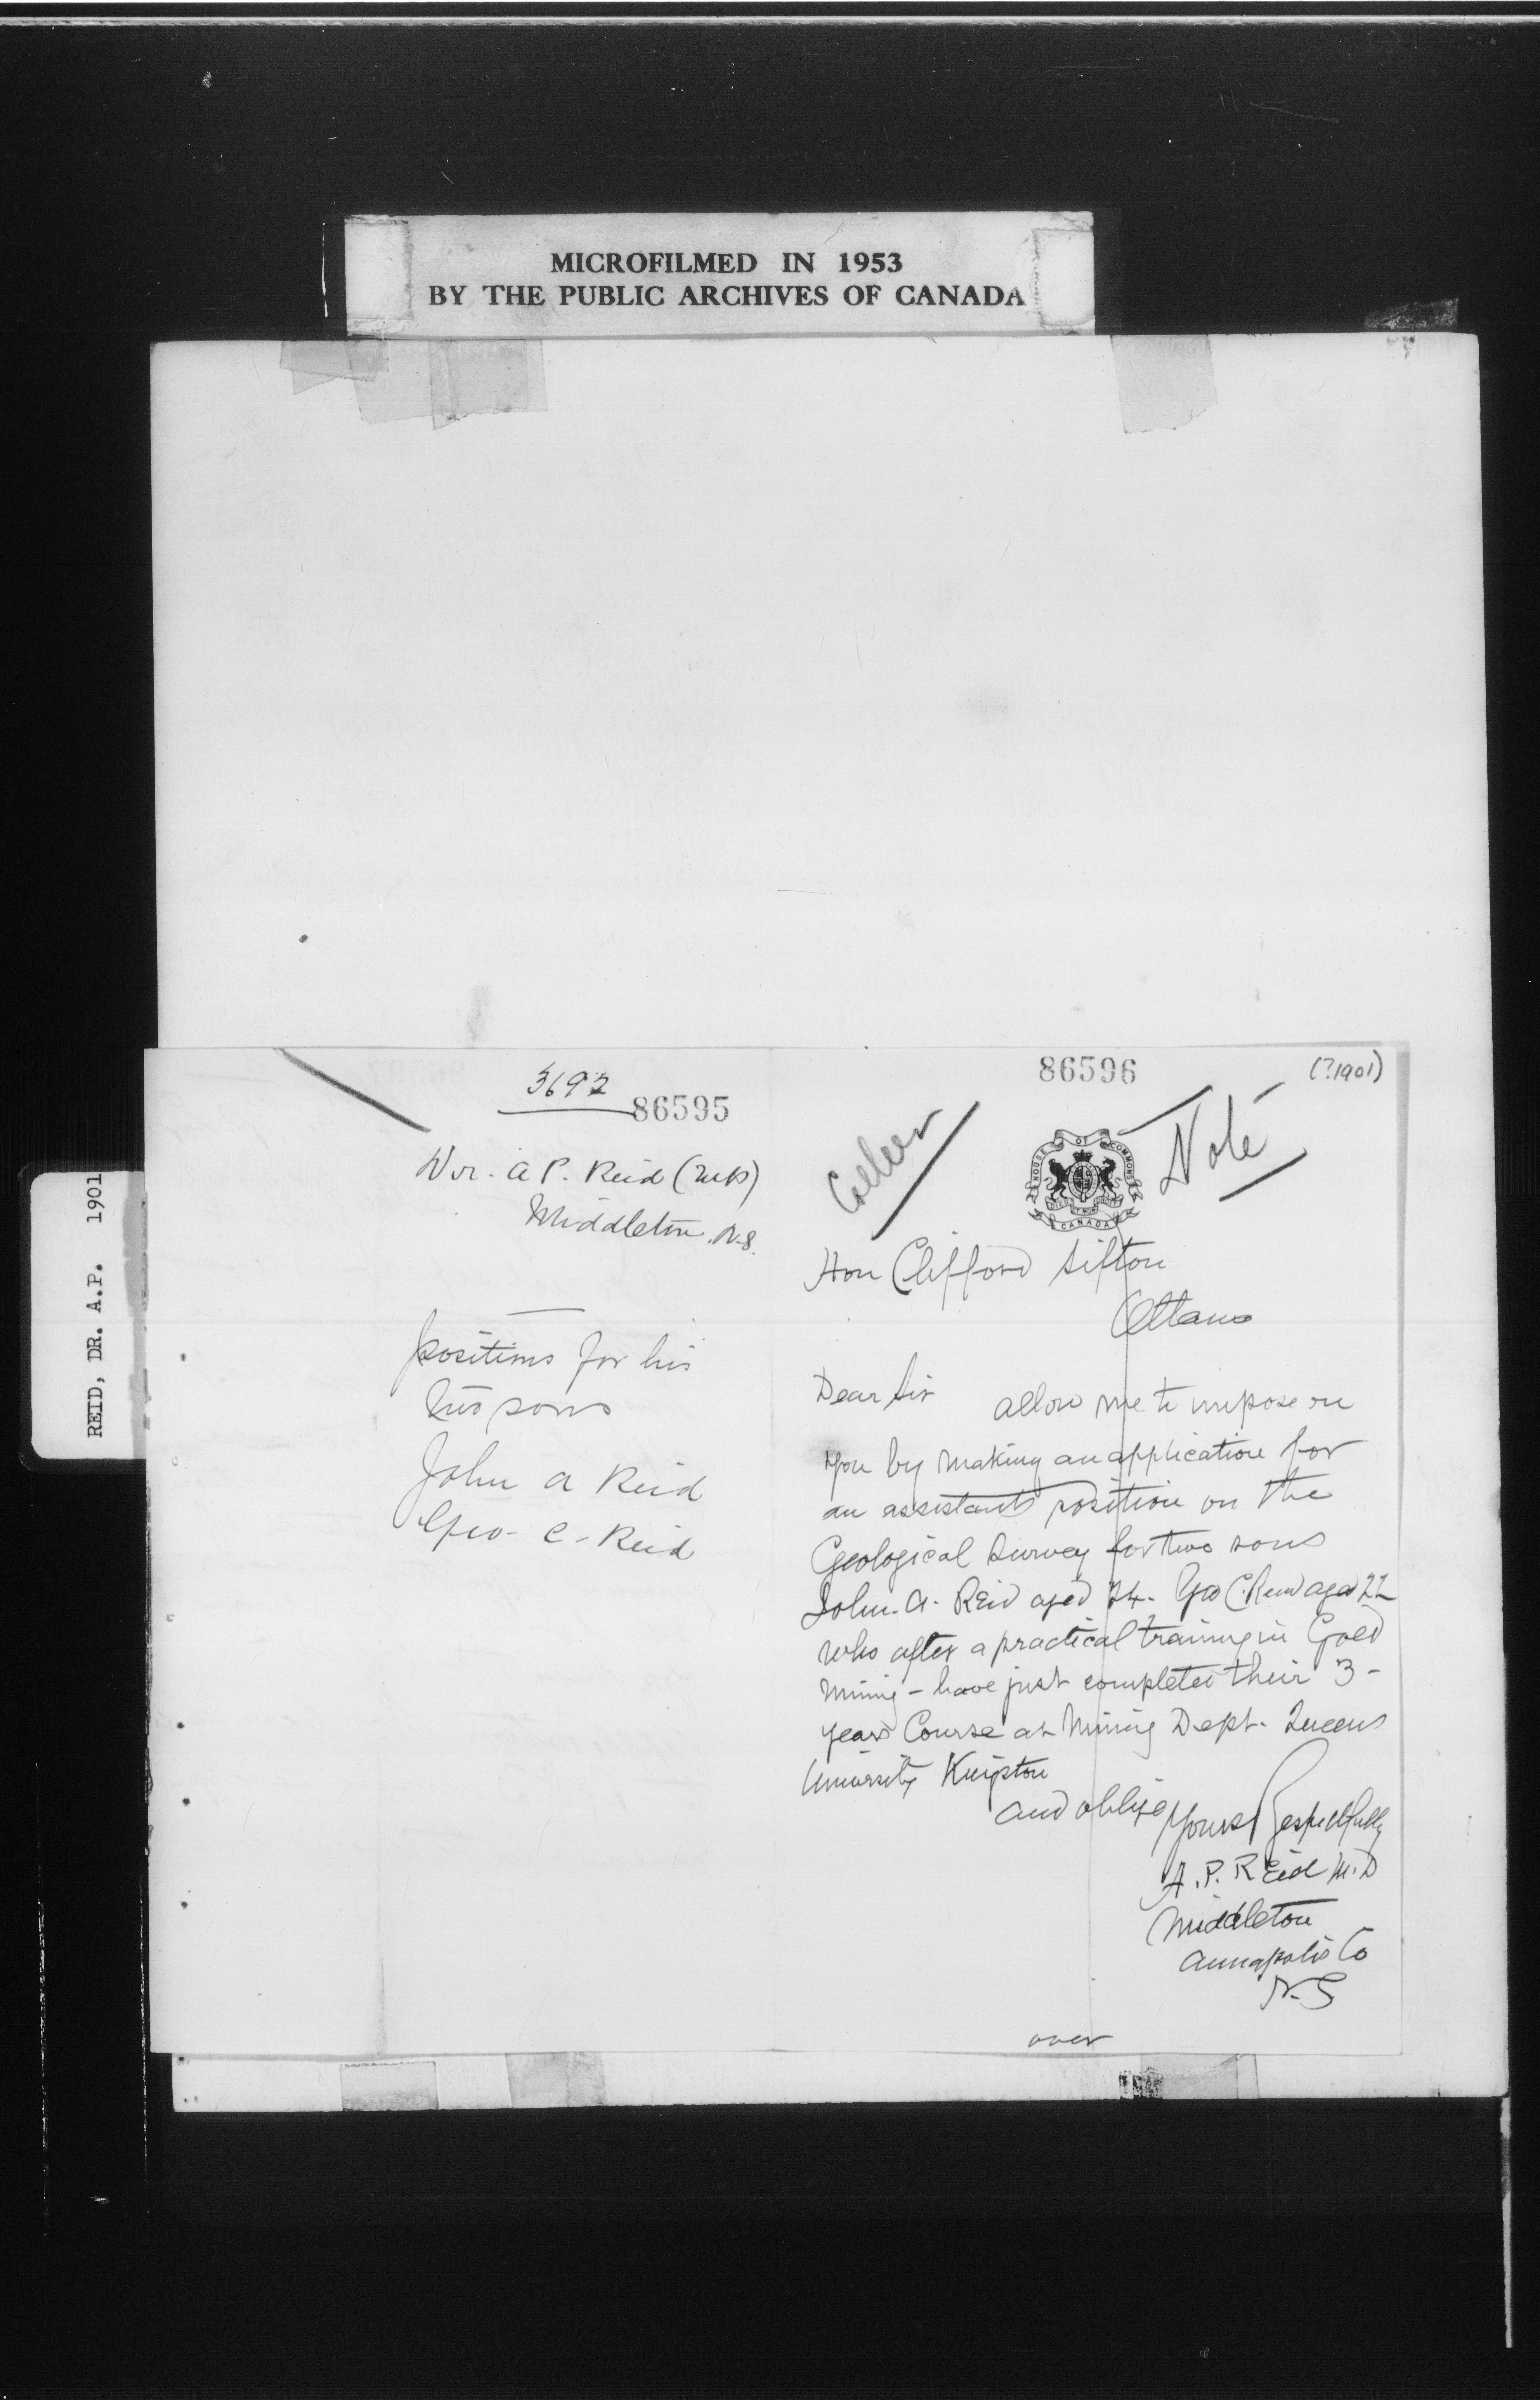 MICROFILMED IN 1953
BY THE PUBLIC ARCHIVES OF CANADA
REID, DR. A.P. 1901
3692
86595
Dr. A P. Reid
Middleton. N.S.
positions for his
two sons
John A Reid
Geo - C - Reid
86596
(?1901)
Note
HOUSE OF COMMONS
CANADA
Hon Clifford Sifton
Ottawa
Dear Sir allow me to impose on
you by making an application for
an assistants position on the
Geological Survey for two sons
John. A. Reid aged 24. Geo C. Reid aged 22
who after a practical training in Gold
mining - have just completed their 3 -
years Course at Mining Dept. Queens
University Kingston
and oblige Yours Respectfully
A. P. Reid M.D
Middleton
Annapolis Co
N.S
over